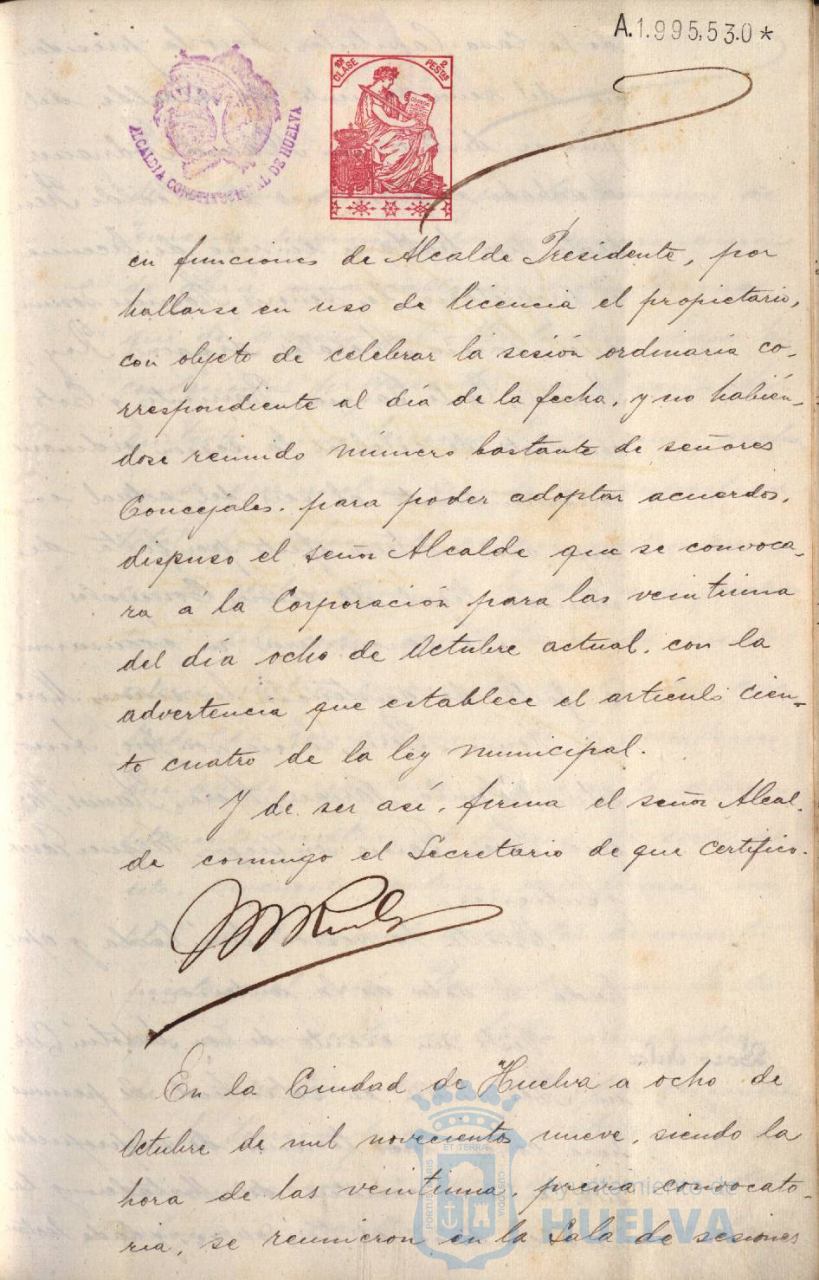 A.1.995,530*
10ª CLASE
2 PESTAS
ALCALDIA CONSTITUCIONAL DE HUELVA
en funciones de Alcalde Presidente, por
hallarse en uso de licencia el propietario,
con objeto de celebrar la sesión ordinaria co-
rrespondiente al día de la fecha, y no habién-
dose reunido número bastante de señores
Concejales, para poder adoptar acuerdos,
dispuso el señor Alcalde que se convoca-
ra a la Corporación para las veintiuna
del día ocho de Octubre actual, con la
advertencia que establece el artículo cien-
to cuatro de la ley municipal.
Y de ser así, firma el señor Alcal-
de conmigo el Secretario de que certifico.
En la Ciudad de Huelva a ocho de
Octubre de mil novecientos nueve, siendo la
hora de las veintiuna, previa convocato-
ria, se reunieron en la Sala de sesiones
Ayuntamiento de
HUELVA